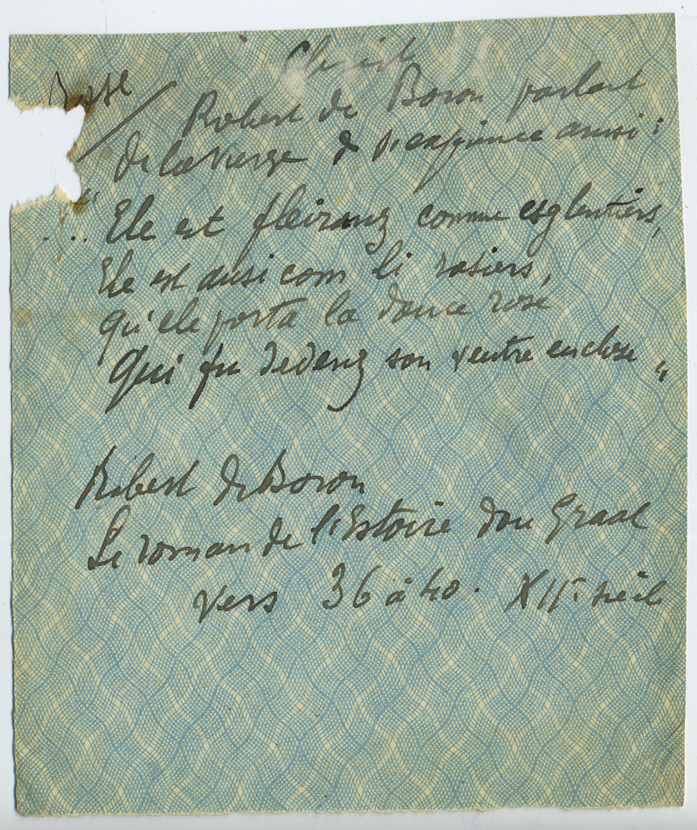 Christ
Rose
Robert de Boron parlant
de la Vierge s'exprime ainsi :
"... Ele est fleiranz comme esglentiers,
Ele est ausi com li rosiers,
qu'ele porta la douce rose
Qui fu dedenz son ventre enclose "
Robert de Boron
Le roman de l'Estoire dou Graal
vers 36 à 40. XIIe siècle